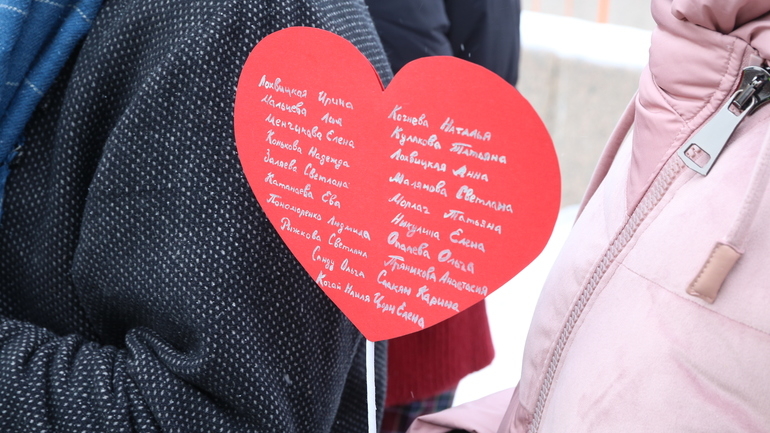 Лохвицкая Ирина
Мальцева Лия
Менчикова Елена
Конькова Надежда
Валяева Светлана
Катанаева Ева
Пономаренко Людмила
Рыжкова Светлана
Санду Ольга
Когай Наиля
Когнева Наталья
Кулкова Татьяна
Лохвицкая Анна
Малахова Светлана
Морлач Татьяна
Никулина Елена
Опалева Ольга
Пряникова Анастасия
Саакян Карина
Цорн Елена